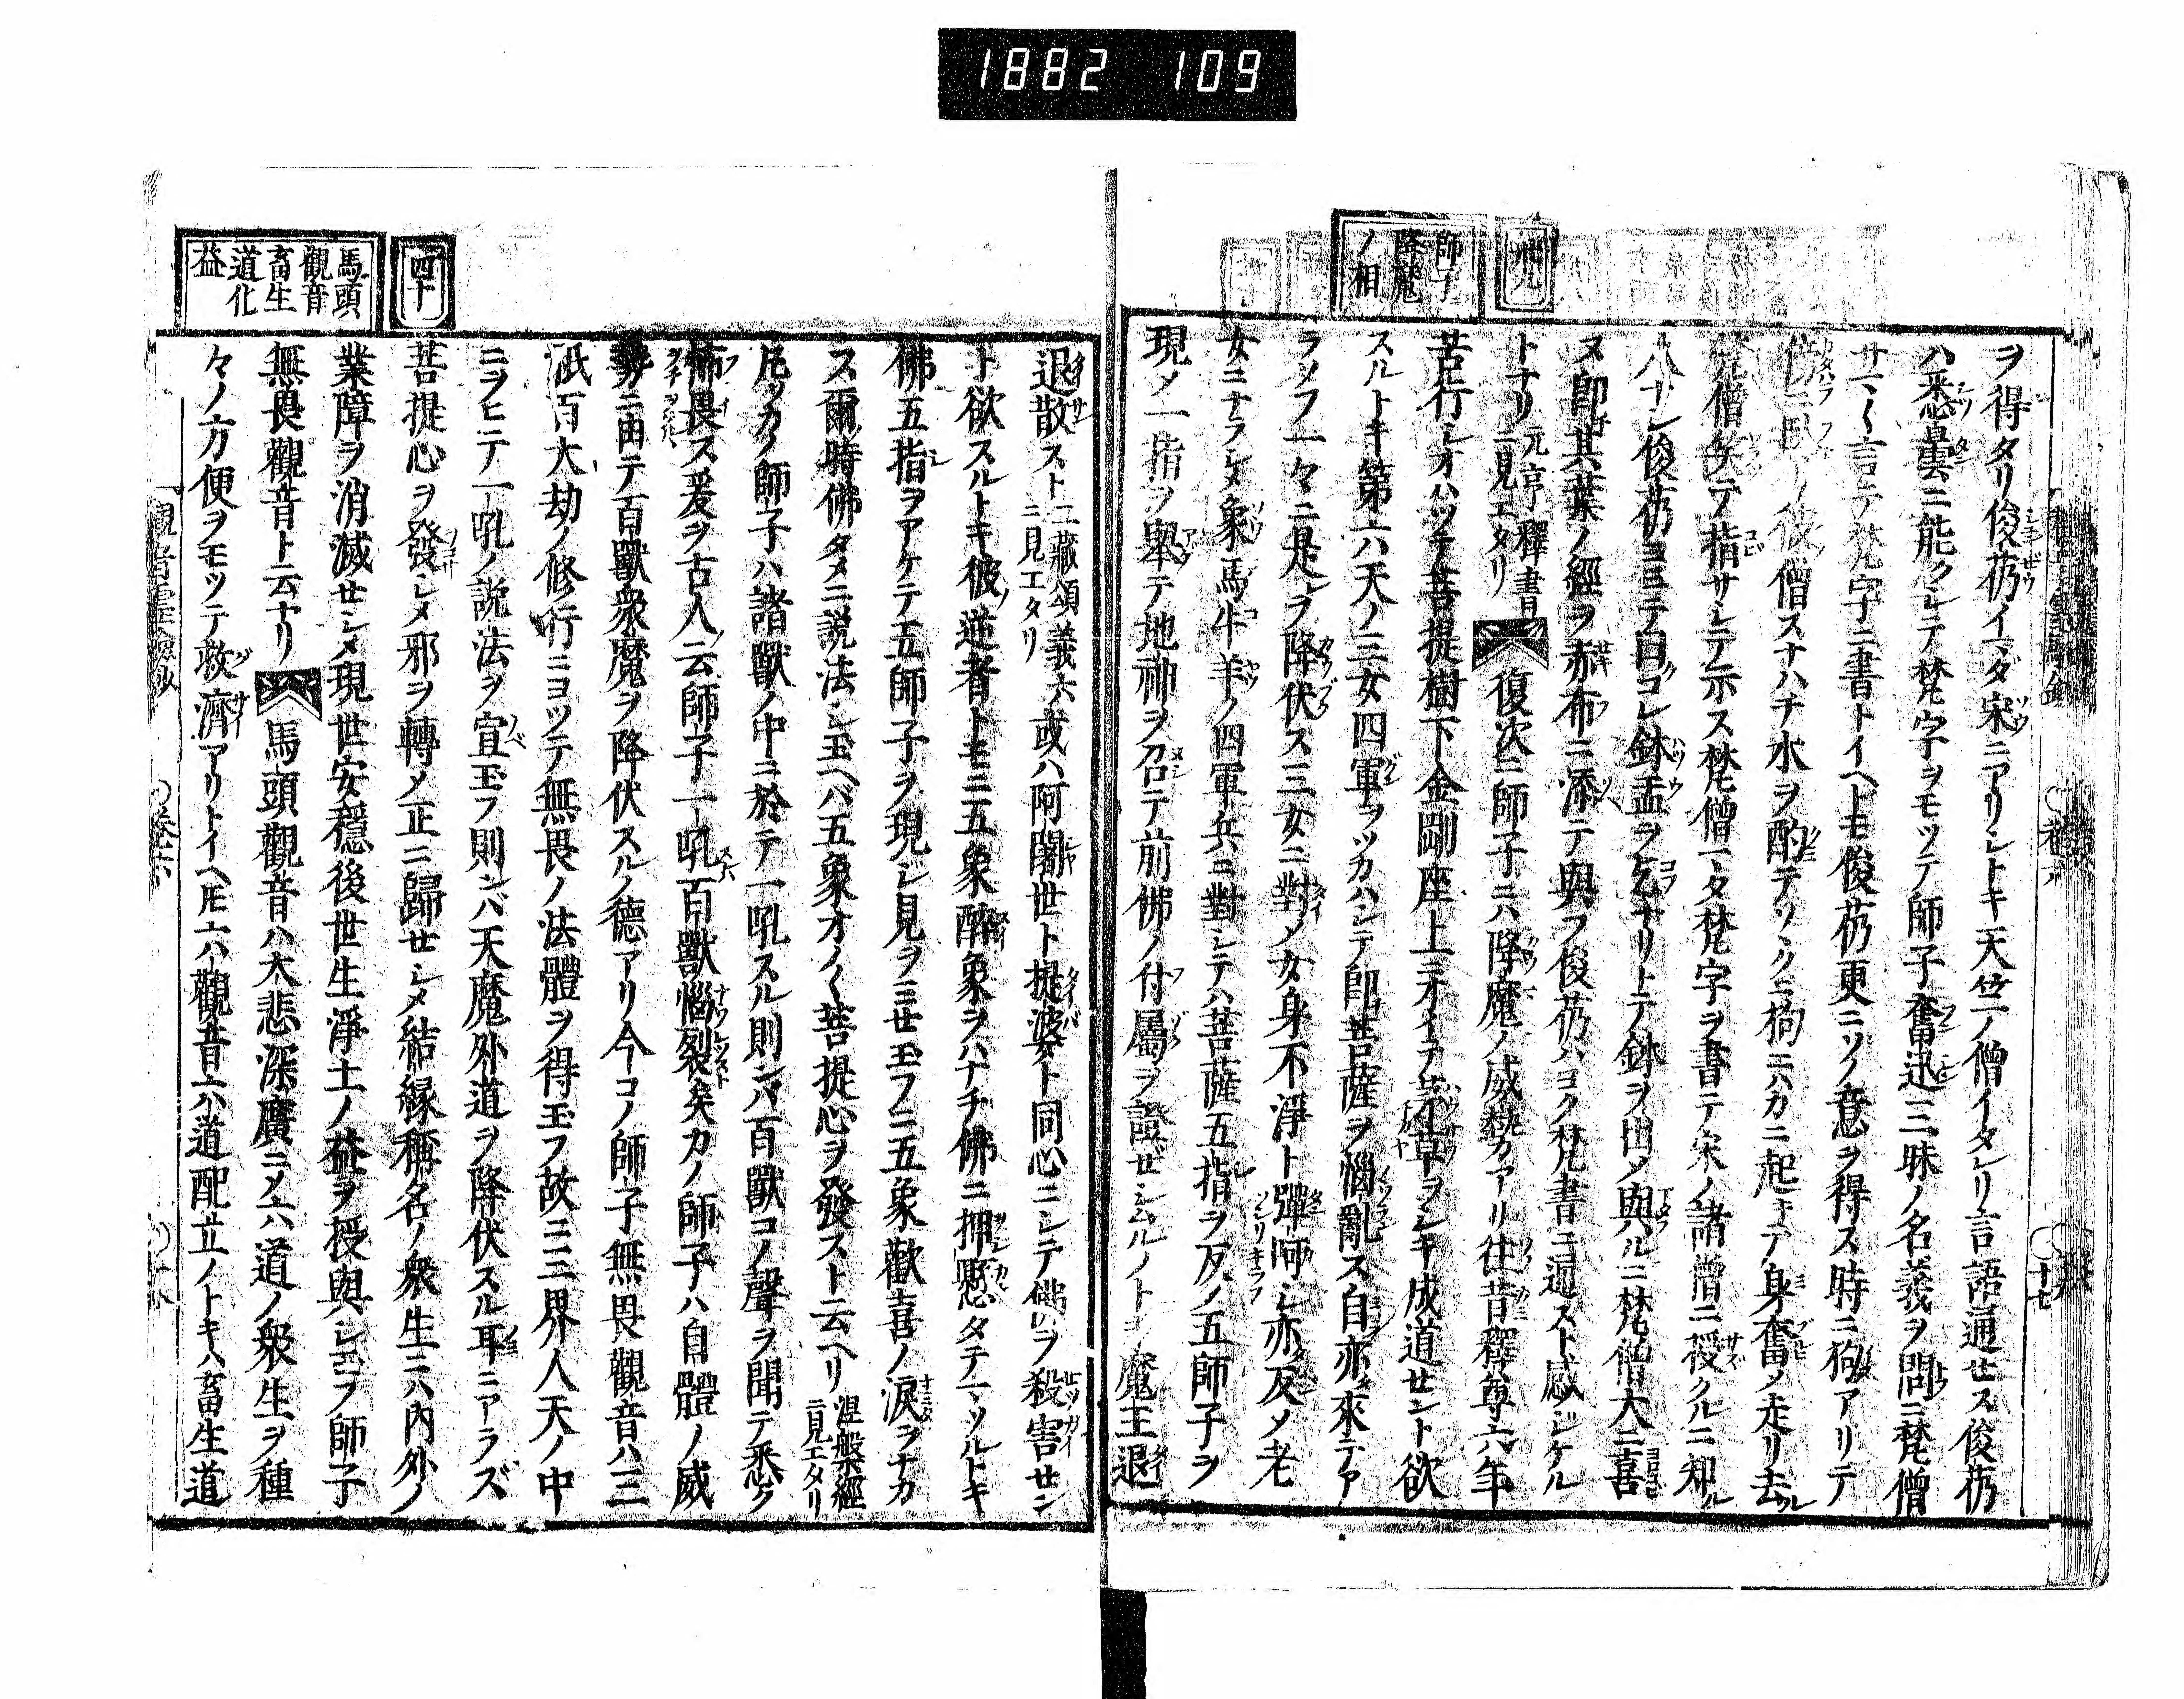 1882 109
卅九
師子
降魔
ノ相
ヲ得タリ俊芿イマダ宋ニアリシトキ天竺ノ僧イタレリ言語通せス俊芿
ハ悉曇ニ能クシテ梵字ヲモツテ師子奮迅三昧ノ名義ヲ問ニ梵僧
サマ〱言テ梵字ニ書トイヘトモ俊芿更ニソノ意ヲ得ス時ニ狗アリテ
ニ臥テ彼僧スナハチ水ヲ酌テソヽクニ狗ニハカニ起キテ身奮ノ走リ去ル
梵僧矣テ指サシテ示ス梵僧マタ梵字ヲ書テ宋ノ諸僧ニ授クルニ知ル
人ナシ俊芿ヨミテ曰コレ鉢盂ヲ乞ナリトテ鉢ヲ出メ與ルニ梵僧大ニ喜
ヌ即其葉ノ經ヲ赤布ニ添テ與フ俊芿ハヨク梵書ニ通スト感ジケル
トナリ元亨釋書ニ見エタリ 復次ニ師子ニハ降魔ノ威勢カアリ往昔釋尊六年
苦行シオハツテ菩提樹下金剛座上ニオイテ草ヲシキ成道せント欲
スルトキ第六天ノ三女四軍ヲツカハシテ即菩薩ヲ惱亂ス自亦來テア
ラソフ一々ニ是レヲ降伏ス三女ニ對メ女身不淨ト彈呵シ亦反メ老
女ニナラシメ象馬牛羊ノ四軍兵ニ對シテハ菩薩五指ヲ反ノ五師子ヲ
現メ一指ヲ舉テ地神ヲ召テ前佛ノ付屬ヲ證せシムルノトキ魔王退
四十
馬頭
觀音
畜生
道化
益
退散スト二藏頌義六ニ見エタリ 或ハ阿闍世ト提婆ト同心ニシテ佛ヲ殺害せン
ト欲スルトキ彼逆者トモニ五象醉象ヲハナチ佛ニ押懸タテマツルトキ
佛五指ヲアケテ五師子ヲ現シ見ヲミせ玉フニ五象歡喜ノ淚ヲナカ
ス爾時佛タメニ説法シ玉ヘバ五象オノ〱菩提心ヲ發スト云ヘリ涅槃經ニ見エタリ
凡ソカノ師子ハ諸獸ノ中ニ於テ一吼スル則ンバ百獸コノ聲ヲ聞テ悉ク
怖畏ス爰ヲ古人云師子一吼百獸惱裂矣カノ師子ハ自體ノ威
勢ニ由テ百獸衆魔ヲ降伏スルノ德アリ今コノ師子無畏觀音ハ三
祇百大劫ノ修行ニヨツテ無畏ノ法體ヲ得玉フ故ニ三界人天ノ中
ニヲヒテ一吼ノ説法ヲ宣玉フ則ンバ天魔外道ヲ降伏スル耳ニアラズ
菩提心ヲ發シメ邪ヲ轉メ正ニ歸せシメ結縁稱名ノ衆生ニハ内外ノ
業障ヲ消滅せシメ現世安穩後世生淨土ノ益ヲ授與シ玉フ師子
無畏觀音ト云ナリ 馬頭觀音ハ大悲深廣ニメ六道ノ衆生ヲ種
々ノ方便ヲモツテ救濟アリトイヘ𪜈六觀音六道配立ノトキハ畜生道